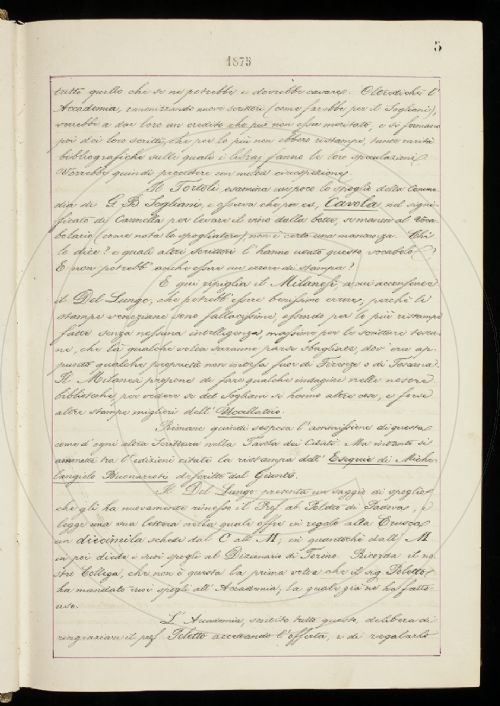 5
1875
tutto quello che se ne potrebbe e dovrebbe cavare. Oltredichè l'
Accademia, canonizzando nuovi scrittori (come farebbe per il Sogliani),
verrebbe a dar loro un credito che può non essa meritato, e si formano
poi dei loro scritti, che per lo più non ebbero ristampe, tante rarità
bibliografiche sulle quali i librai fanno le loro speculazioni.
Vorrebbe quindi procedere con molta circospezione.
Il Tortoli esamina un poco lo spoglio della Comme-
dia di G. B. Sogliani, e osserva che per es. Cavola, nel signi-
ficato di Cannella per levare il vino dalla botte, se manca al Voca-
bolario (come nota lo spogliatore), non è certo una mancanza. Chi
lo dice? e quali altri Scrittori l'hanno usato questo vocabolo?
E non potrebb' anche essere un errore di stampa?
E qui ripiglia il Milanesi, a cui acconsente
il Del Lungo, che potrebb' essere benissimo errore, perchè le
stampe veneziane sono fallacissime, essendo per lo più ristampe
fatte senza nessuna intelligenza, massime per le scritture tosca-
ne, che là qualche volta saranno parse sbagliate dov' era ap-
punto qualche proprietà non intesa fuor di Firenze o di Toscana.
Il Milanesi propone di fare qualche indagine nelle nostre
biblioteche, per vedere se del Sogliani se hanno altre cose, e forse
altre stampe migliori dell' Uccellatoio.
Rimane quindi sospesa l'ammissione di questa
come d'ogni altra Scrittura nella Tavola dei Citati. Ma intanto si
ammette tra l'edizioni citate la ristampa dell' Esequie di Miche-
langiolo Buonarroti descritte dal Giunti.
Il Del Lungo presenta un saggio di spoglio
che gli ha nuovamente rimesso il Prof. ab. Poletto di Padova, e
legge una sua lettera nella quale offre in regalo alla Crusca
un diecimila schede dal C all' M, in quantochè dall' M
in poi diede i suoi spogli al Dizionario di Torino. Ricorda il no-
stro Collega, che non è questa la prima volta che il sig. Poletto
ha mandato suoi spogli all' Accademia, la quale già ne ha fatto
uso.
L'Accademia, sentito tutto questo, delibera di
ringraziare il prof. Poletto accettando l'offerta, e di regalarlo